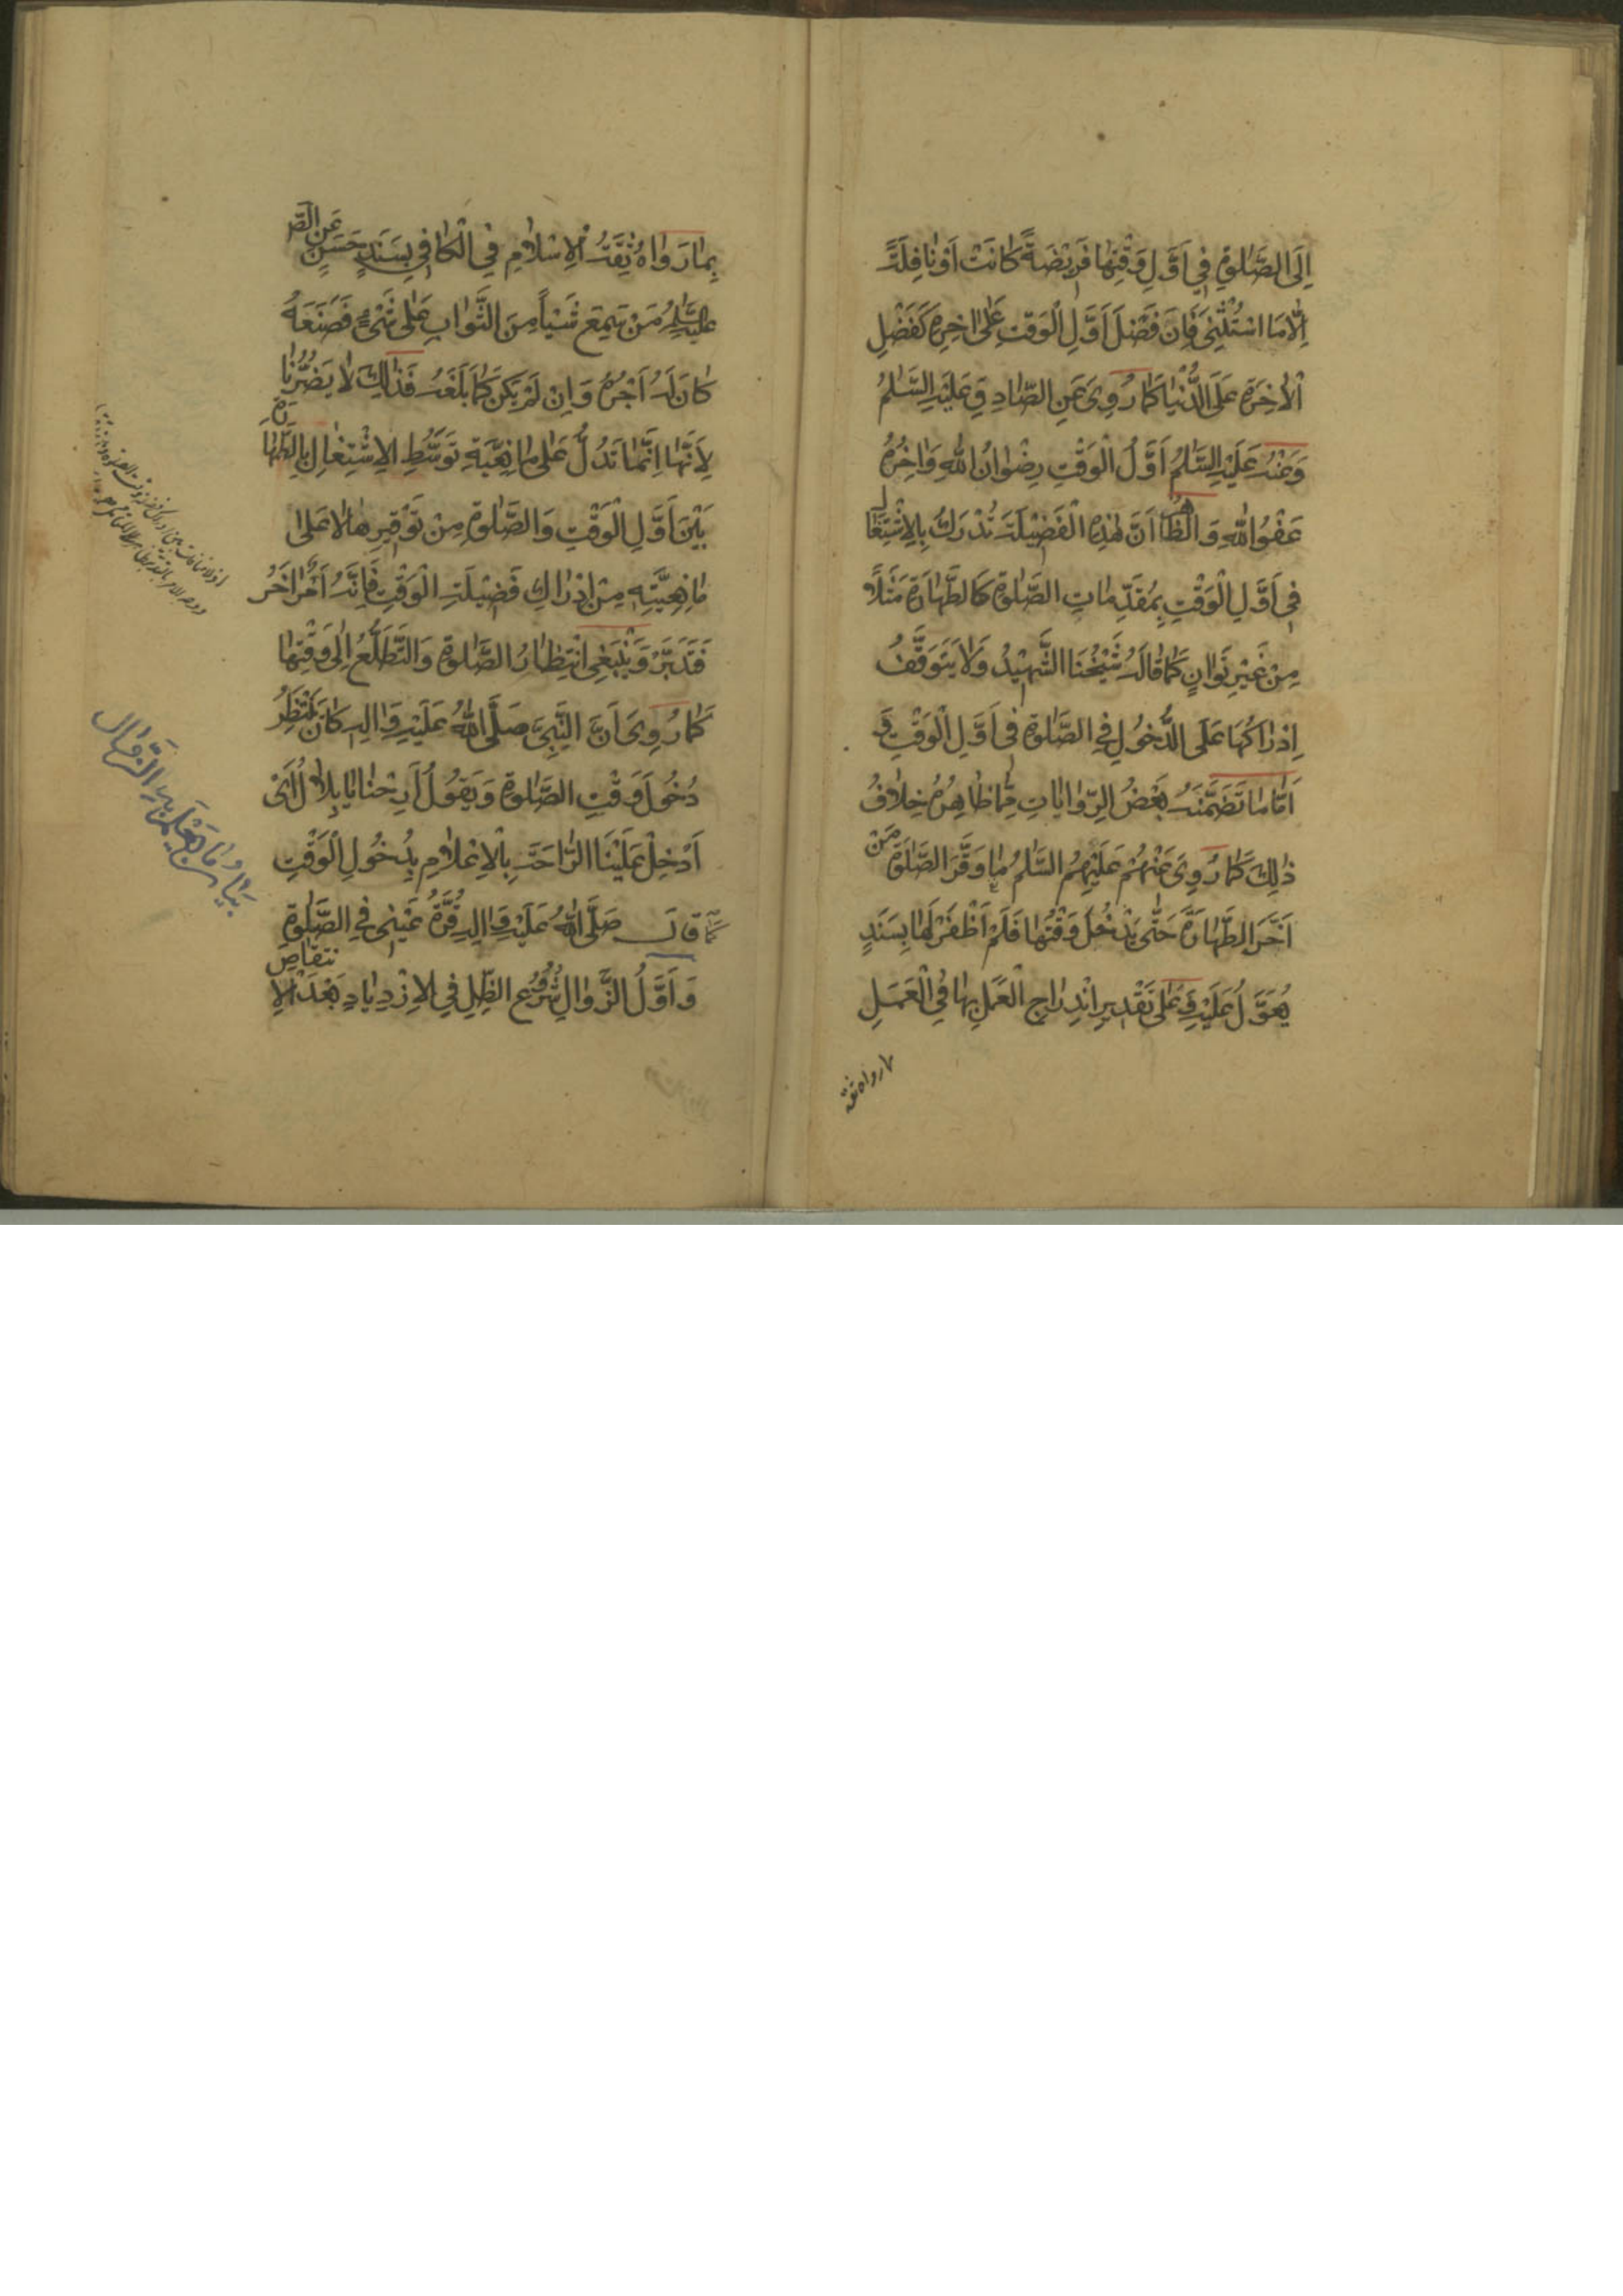 اِلَى الصَّلٰوةِ فِي اَوَّلِ وَقْتِهَا فَرِيْضَةً كَانَتْ اَوْ نَافِلَةً
اِلَّا مَا اسْتُثْنِيَ فَاِنَّ فَضْلَ اَوَّلِ الْوَقْتِ عَلٰى اٰخِرِهِ كَفَضْلِ
الْاٰخِرَةِ عَلَى الدُّنْيَا كَمَا رُوِيَ عَنِ الصَّادِقِ عَلَيْهِ السَّلٰمُ
وَعَنْهُ عَلَيْهِ السَّلٰمُ اَوَّلُ الْوَقْتِ رِضْوَانُ اللّٰهِ وَاٰخِرُهُ
عَفْوُ اللّٰهِ وَالظَّاهِرُ اَنَّ هٰذِهِ الْفَضِيْلَةَ تُدْرَكُ بِالْاِشْتِغَالِ
فِي اَوَّلِ الْوَقْتِ بِمُقَدِّمَاتِ الصَّلٰوةِ كَالطَّهَارَةِ مَثَلًا
مِنْ غَيْرِ تَوَانٍ كَمَا قَالَهُ شَيْخُنَا الشَّهِيْدُ وَلَا يَتَوَقَّفُ
اِدْرَاكُهَا عَلَى الدُّخُولِ فِي الصَّلٰوةِ فِي اَوَّلِ الْوَقْتِ وَ
اَمَّا مَا تَضَمَّنَهُ بَعْضُ الرِّوَايَاتِ مِمَّا ظَاهِرُهُ خِلَافُ
ذٰلِكَ كَمَا رُوِيَ عَنْهُمْ عَلَيْهِمُ السَّلٰمُ مَا وَقَّرَ الصَّلٰوةَ مَنْ
اَخَّرَ الطَّهَارَةَ حَتّٰى يَدْخُلَ وَقْتُهَا فَلَمْ اَظْفَرْ لَهَا بِسَنَدٍ
يُعَوَّلُ عَلَيْهِ وَعَلٰى تَقْدِيرِ انْدِرَاجِ الْعَمَلِ بِهَا فِي الْعَمَلِ
بما رواه ثقة
بِمَا رَوَاهُ ثِقَةُ الْاِسْلَامِ فِي الْكَافِي بِسَنَدٍ حَسَنٍ عَنِ الصَّ
عَلَيْهِ السَّلٰمُ مَنْ سَمِعَ شَيْئًا مِنَ الثَّوَابِ عَلٰى شَيْءٍ فَصَنَعَهُ
كَانَ لَهُ اَجْرُهُ وَاِنْ لَمْ يَكُنْ كَمَا بَلَغَهُ فَذٰلِكَ لَا يَضُرُّنَا
لِاَنَّهَا اِنَّمَا تَدُلُّ عَلٰى مَانِعِيَّةِ تَوَسُّطِ الْاِشْتِغَالِ بِالطَّهَارَةِ
بَيْنَ اَوَّلِ الْوَقْتِ وَالصَّلٰوةِ مِنْ تَوْقِيرِهَا لَا عَلٰى
مَانِعِيَّتِهِ مِنْ اِدْرَاكِ فَضِيْلَةِ الْوَقْتِ فَاِنَّهُ اَمْرٌ اٰخَرُ
فَتَدَبَّرْ وَيَنْبَغِي انْتِظَارُ الصَّلٰوةِ وَالتَّطَلُّعُ اِلٰى وَقْتِهَا
كَمَا رُوِيَ اَنَّ النَّبِيَّ صَلَّى اللّٰهُ عَلَيْهِ وَاٰلِهِ كَانَ يَنْتَظِرُ
دُخُولَ وَقْتِ الصَّلٰوةِ وَيَقُولُ اَرِحْنَا يَا بِلَالُ اَيْ
اَدْخِلْ عَلَيْنَا الرَّاحَةَ بِالْاِعْلَامِ بِدُخُولِ الْوَقْتِ
كَمَا قَالَ صَلَّى اللّٰهُ عَلَيْهِ وَاٰلِهِ قُرَّةُ عَيْنِي فِي الصَّلٰوةِ
وَ اَوَّلُ الزَّوَالِ شُرُوْعُ الظِّلِّ فِي الْاِزْدِيَادِ بَعْدَ الْاِنْتِقَاصِ
بيان ما يعلم به الزوال